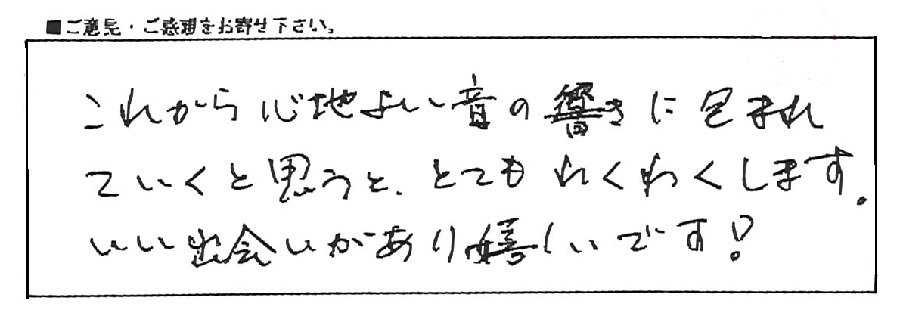 ■ご意見・ご感想をお寄せ下さい。
これから心地よい音の響きに包まれ
ていくと思うと、とてもわくわくします。
いい出会いがあり嬉しいです!